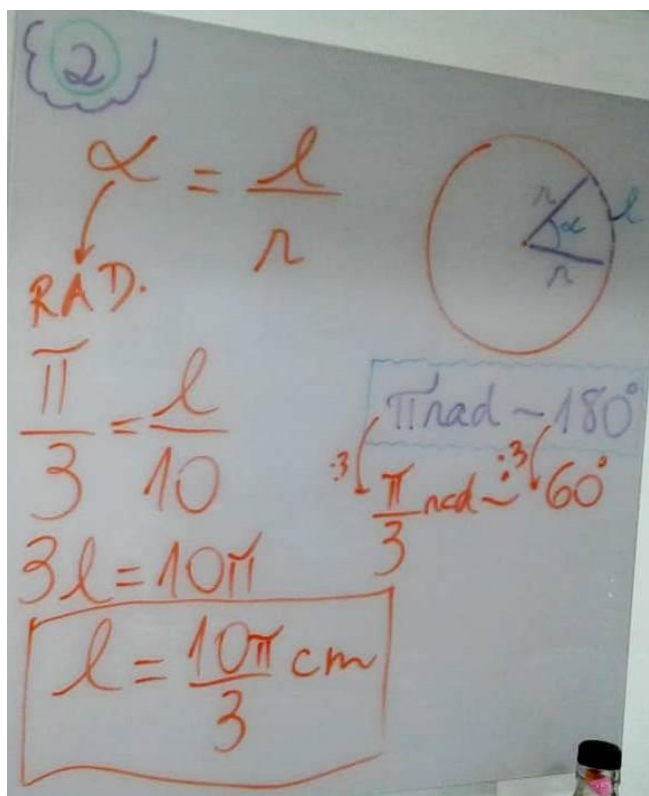 2
α = l/r
RAD.
r α l
r
π/3 = l/10
πrad ~ 180°
:3 :3
π/3 rad ~ 60°
3l = 10π
l = 10π/3 cm